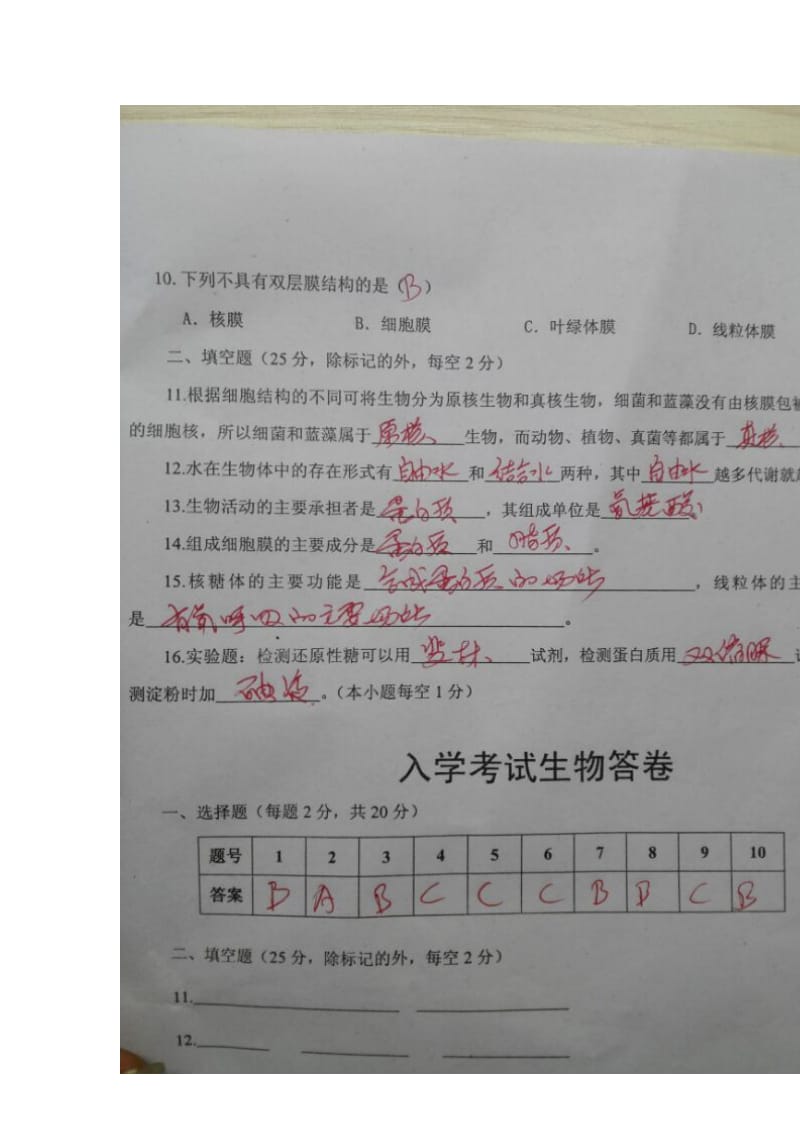 10. 下列不具有双层膜结构的是（B）
A. 核膜 B. 细胞膜 C. 叶绿体膜 D. 线粒体膜
二、填空题（25分，除标记的外，每空2分）
11.根据细胞结构的不同可将生物分为原核生物和真核生物，细菌和蓝藻没有由核膜包被
的细胞核，所以细菌和蓝藻属于原核生物，而动物、植物、真菌等都属于真核
12.水在生物体中的存在形式有自由水和结合水两种，其中自由水越多代谢就
13.生物活动的主要承担者是蛋白质，其组成单位是氨基酸
14.组成细胞膜的主要成分是蛋白质和脂质。
15.核糖体的主要功能是合成蛋白质的场所，线粒体的主
是有氧呼吸的主要场所。
16.实验题：检测还原性糖可以用斐林试剂，检测蛋白质用双缩脲
测淀粉时加碘液。（本小题每空1分）
入学考试生物答卷
一、选择题（每题2分，共20分）
题号 1 2 3 4 5 6 7 8 9 10
答案 D A B C C C B D C B
二、填空题（25分，除标记的外，每空2分）
11.
12.